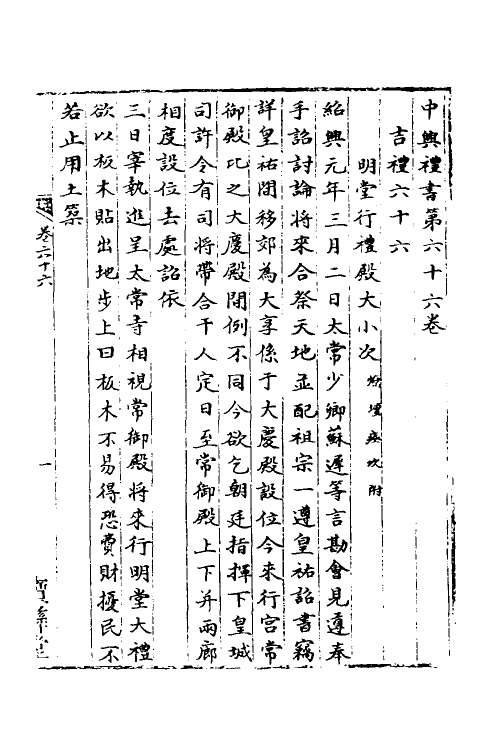 中興禮書第六十六卷
吉禮六十六
明堂行禮殿大小次 燎壇瘞坎附
紹興元年三月二日太常少卿蘇遲等言勘會見遵奉
手詔討論將來合祭天地並配祖宗一遵皇祐詔書竊
詳皇祐間移郊為大享係于大慶殿設位今來行宮常
御殿比之大慶殿閒例不同今欲乞朝廷指揮下皇城
司許令有司將帶合干人定日至常御殿上下并兩廊
相度設位去處詔依
三日宰執進呈太常寺相視常御殿將來行明堂大禮
欲以板木貼出地步上曰板木不易得恐費財擾民不
若止用土築
卷六十六
一